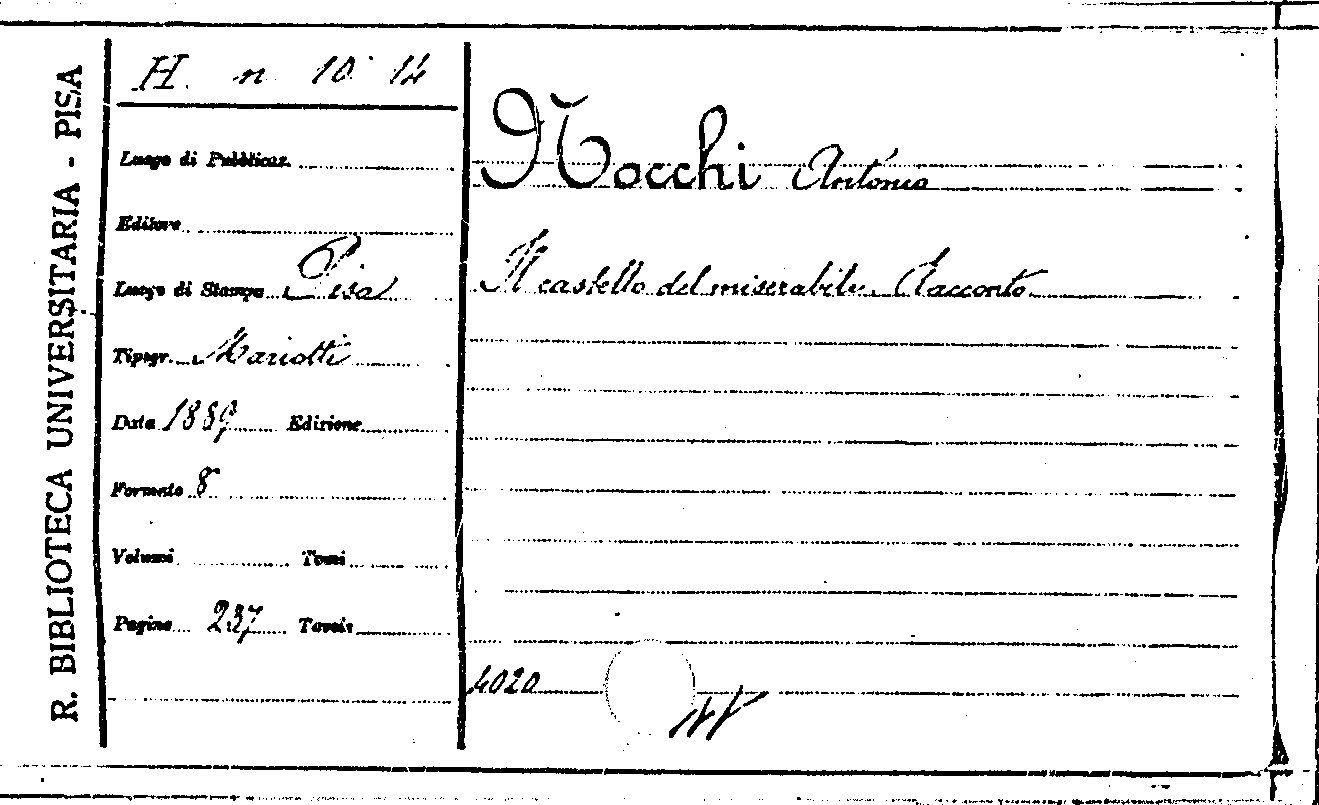 R. BIBLIOTECA UNIVERSITARIA - PISA
H. n 10 14
Luogo di Pubblicaz.
Editore
Luogo di Stampa Pisa
Tipogr. Mariotti
Data 1889 Edizione
Formato 8°
Volumi Tomi
Pagine 237 Tavole
Nocchi Antonio
Il castello del miserabile. Racconto
4020